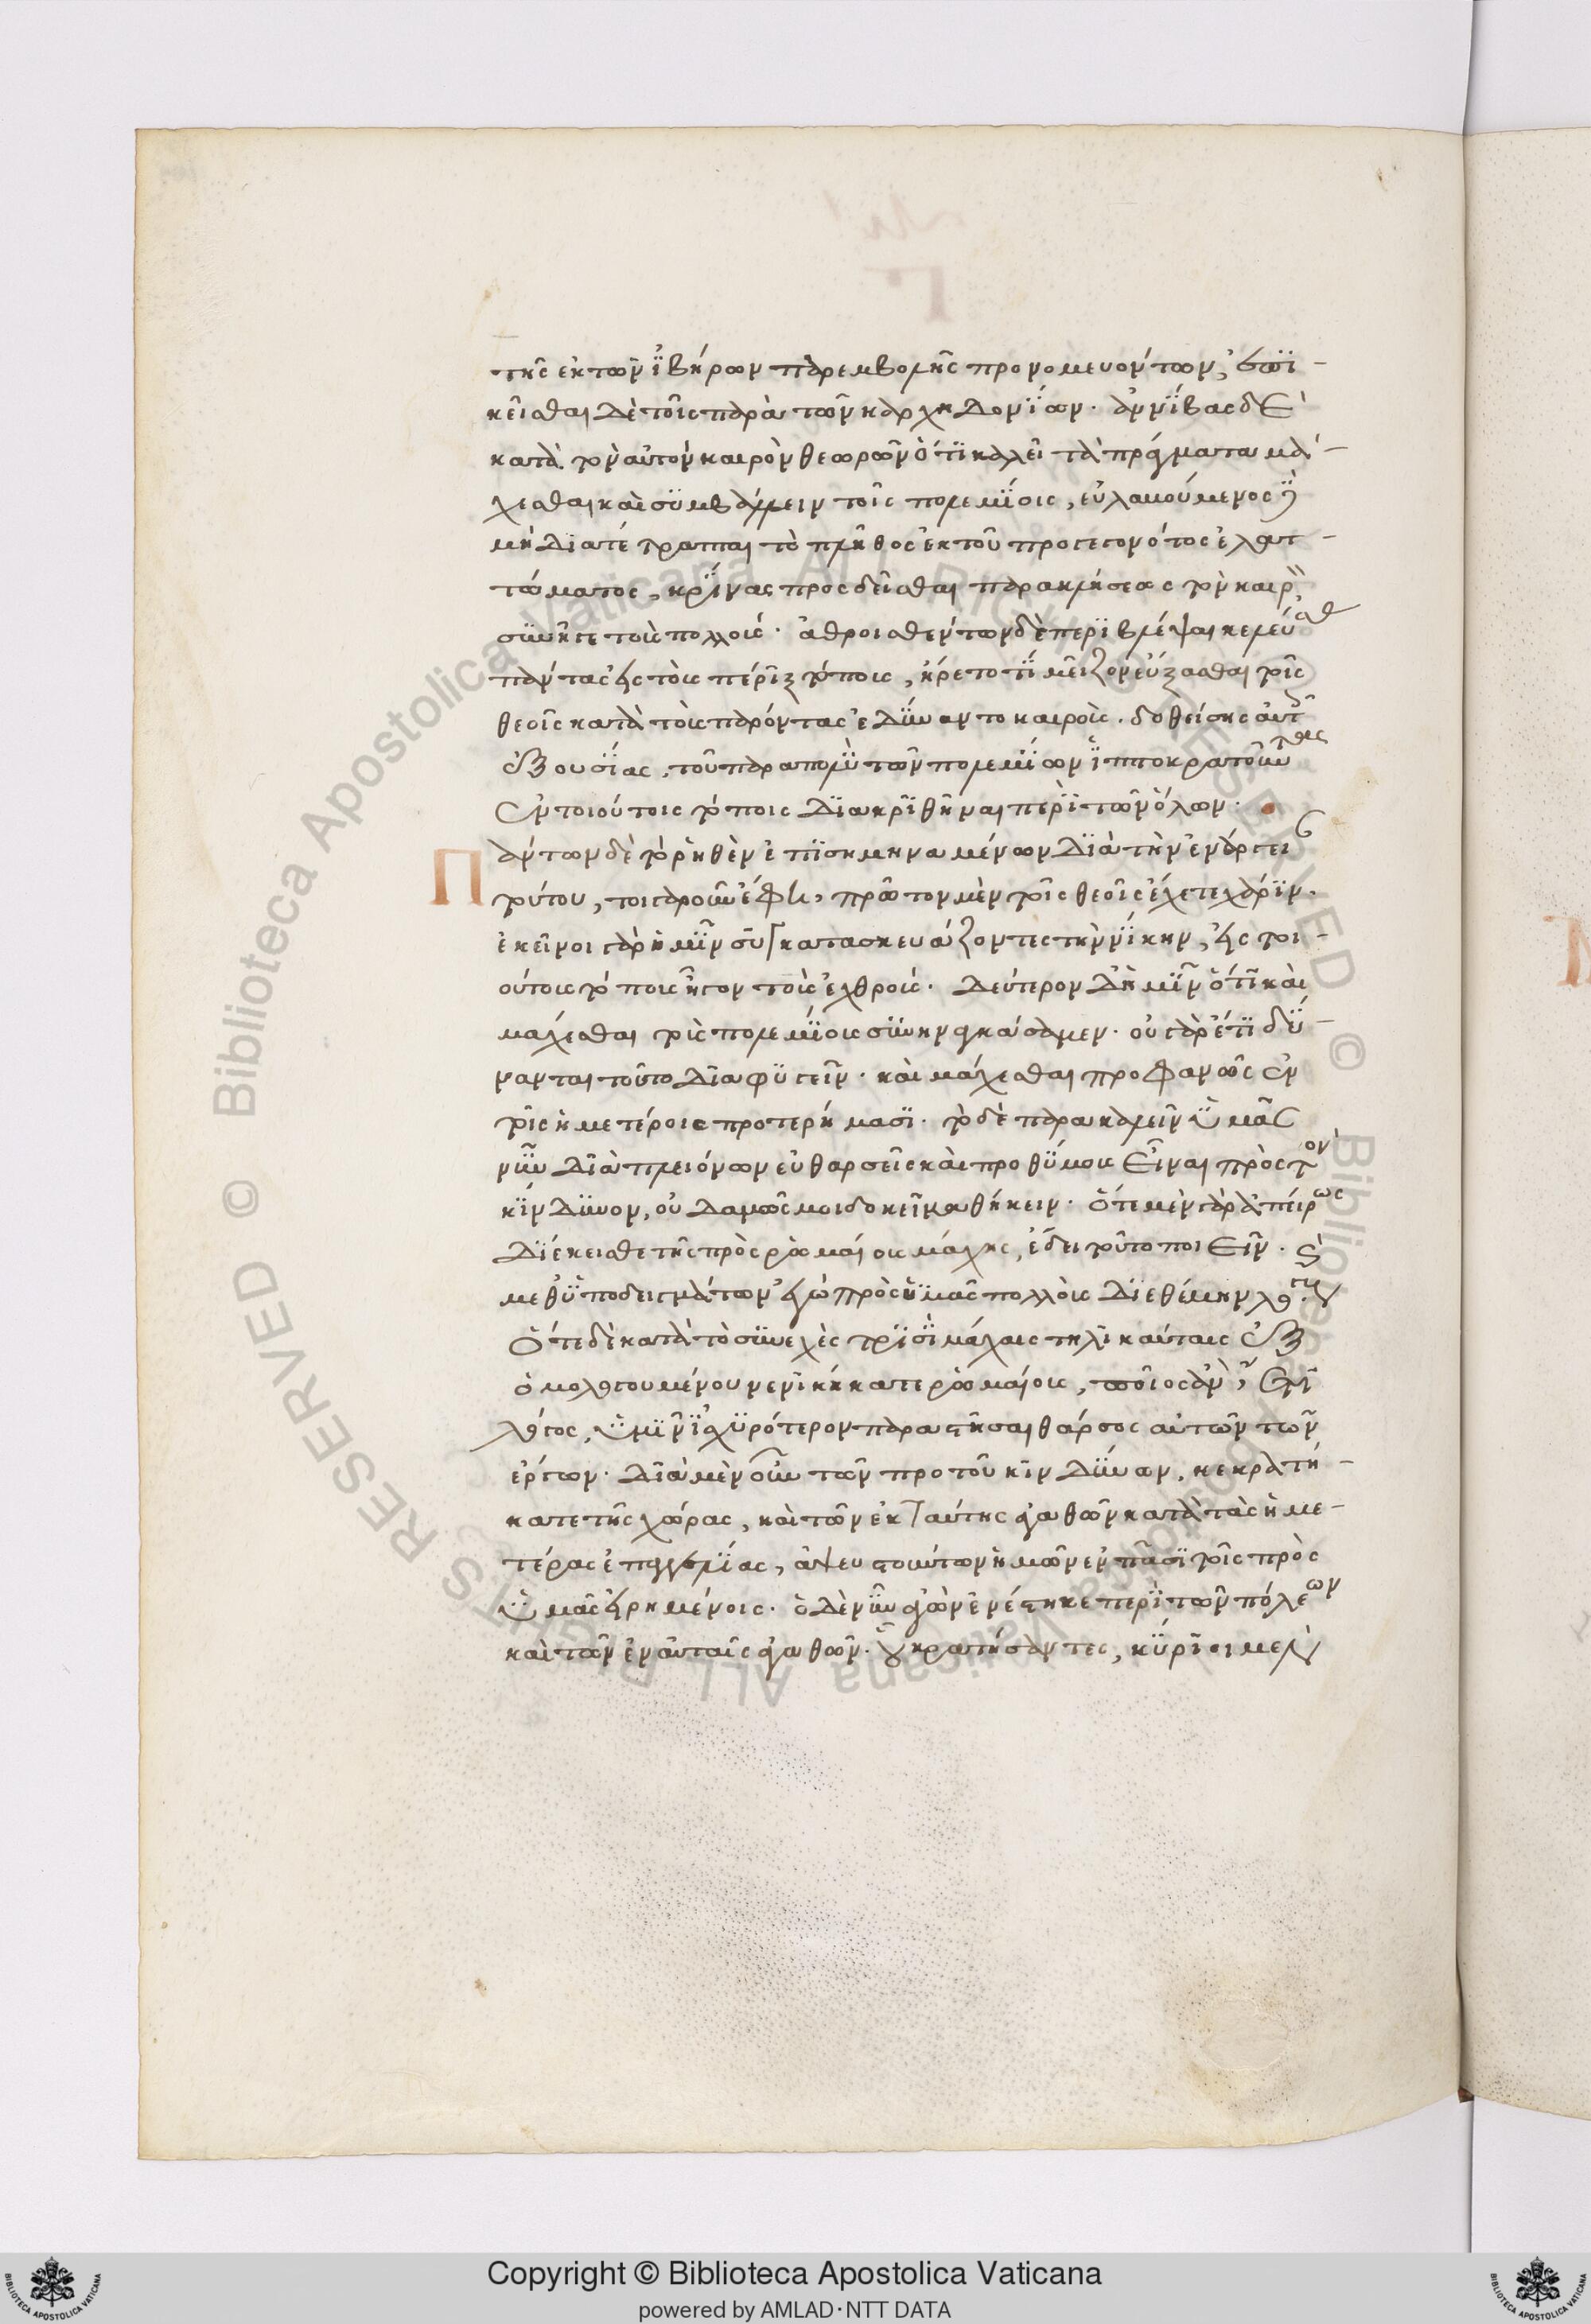 της ἐκ τῶν ϊβήρων παρεμβολῆς προνομευόντων, ἐπϊ-
κεῖσθαι δὲ τοῖς παρὰ τῶν καρχηδονΐων. ἀννΐβας δὲ
κατὰ τὸν αὐτὸν καιρὸν θεωρῶν ὅτϊ καλεῖ τὰ πράγματα μά-
χεσθαι καὶ συμβάλλειν τοῖς πολεμΐοις, εὐλαβούμενος δὲ
μὴ δϊατέτραπται τὸ πλῆθος ἐκ τοῦ προγεγονότος ἐλατ-
τώματος, κρΐνας προσδεῖσθαι παρακλήσεως τὸν καιρὸν
συνῆγε τοὺς πολλούς. ἀθροισθέντων δὲ περϊβλέψαι κελεύσας
πάντας εἰς τοὺς πέρϊξ τόπους, ἤρετο τΐ μεῖζον εὔξασθαι τοῖς
θεοῖς κατὰ τοὺς παρόντας ἐδύναντο καιροὺς. δοθείσης αὐτοῖς
ἐξουσΐας, τοῦ παραπολὺ τῶν πολεμΐων ϊπποκρατοῦντας
ἐν τοιούτοις τόποις δϊακρϊθῆναι περὶ τῶν ὅλων.
Πάντων δὲ τὸ ῥηθὲν ἐπϊσημηναμένων δϊὰ τὴν ἐνάργειαν
τούτου, τοιγαροῦν ἔφη, πρῶτον μὲν τοῖς θεοῖς ἔχετε χάρϊν.
ἐκεῖνοι γὰρ ἡμῖν συγκατασκευάζοντες τὴν νΐκην, εἰς τοι-
ούτους τόπους ἦγον τοὺς ἐχθρούς. δεύτερον δ' ἡμῖν ὅτϊ καὶ
μάχεσθαι τοὺς πολεμΐους συνηναγκάσαμεν. οὐ γὰρ ἔτϊ δύ-
νανται τοῦτο δϊαφυγεῖν. καὶ μάχεσθαι προφανῶς ἐν
τοῖς ἡμετέροις προτερήμασϊ. τὸ δὲ παρακαλεῖν ὑμᾶς
νῦν δϊὰ πλειόνων εὐθαρσεῖς καὶ προθύμους εἶναι πρὸς τὸν
κΐνδυνον, οὐδαμῶς μοι δοκεῖ καθήκειν. ὅτε μὲν γὰρ ἀπείρως
δϊέκεισθε τῆς πρὸς ῥωμαίους μάχης, ἔδει τοῦτο ποιεῖν. καὶ
μεθ' ὑποδειγμάτων ἐγὼ πρὸς ὑμᾶς πολλοὺς δϊεθέμην λόγους
ὅτε δὲ κατὰ τὸ συνεχὲς τρϊσὶ μάχαις τηλϊκαύταις ἐξ
ὁμολογουμένου νενϊκήκατε ῥωμαίους, ποῖος ἂν ἔτϊ
λόγος, ὑμῖν ϊσχυρότερον παραστῆσαι θάρσος αὐτῶν τῶν
ἔργων. δϊὰ μὲν οὖν τῶν πρὸ τοῦ κϊνδύνων, κεκρατή-
κατε τῆς χώρας, καὶ τῶν ἐκ ταύτης ἀγαθῶν κατὰ τὰς ἡμε-
τέρας ἐπαγγελΐας, ἀψευστούντων ἡμῶν ἐν πᾶσϊ τοῖς πρὸς
ὑμᾶς εἰρημένοις. ὁ δὲ νῦν ἀγὼν ἐνέστηκε περὶ τῶν πόλεων
καὶ τῶν ἐν αὐταῖς ἀγαθῶν. οὗ κρατήσαντες, κύρϊοι μὲν
Copyright © Biblioteca Apostolica Vaticana
powered by AMLAD·NTT DATA